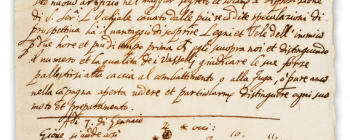 nuovo artifizio nel maggior segreto et solamte a dispositione
di S. Ser.tà L'Ochiale cavato dalle più recondite speculazioni di
prospettiva ha il vantaggio di scoprire Legni et Vele dell'inimico
per due hore et più di tempo prima che egli scuopra noi et distinguendo
il numero et la qualità de i Vasselli, giudicare le sue forze
pallestirsi alla caccia al combattimento o alla fuga, o pure anco
nella capagna aperta vedere et particolarmte distinguere ogni suo
moto et preparamento.
Adì 7. di Gennaio
Giove si vedde così